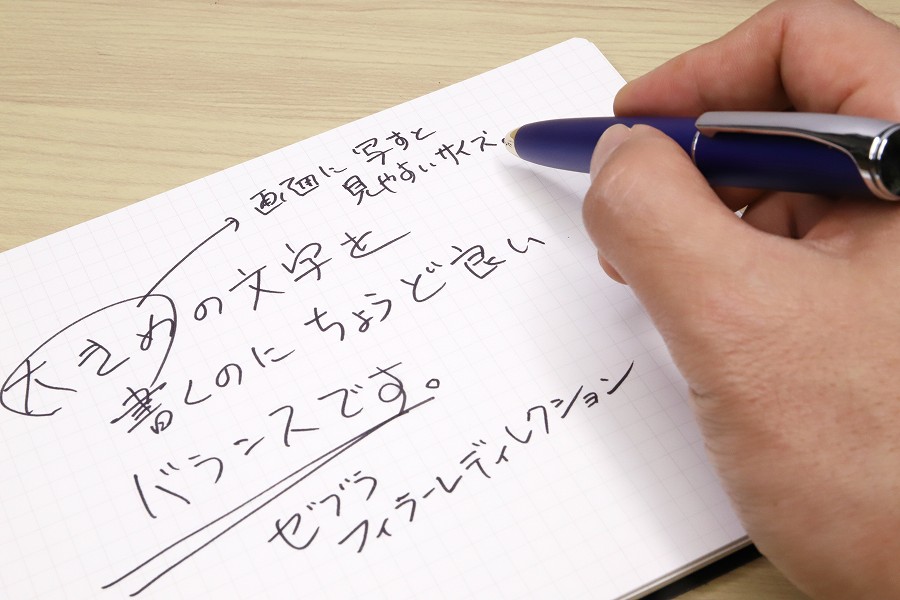 画面に写すと
見やすいサイズ。
大きめの文字を
書くのにちょうど良い
バランスです。
ゼブラ
フィラーレディレクション